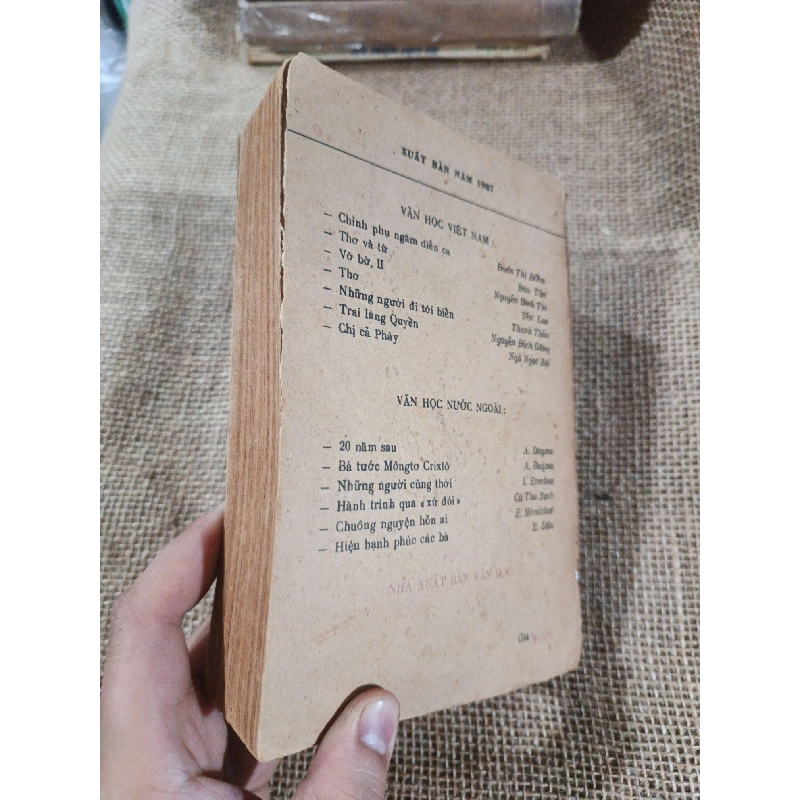 XUẤT BẢN NĂM 1987
VĂN HỌC VIỆT NAM :
— Chinh phụ ngâm diễn ca Đoàn Thị Điểm
— Thơ và từ Đào Tấn
— Vỡ bờ, II Nguyễn Đình Thi
— Thơ Yến Lan
— Những người đi tới biển Thanh Thảo
— Trai làng Quyền Nguyễn Địch Dũng
— Chị cả Phây Ngô Ngọc Bội
VĂN HỌC NƯỚC NGOÀI :
— 20 năm sau A. Đuyma
— Bá tước Môngtơ Crixtô A. Đuyma
— Những người cùng thời I. Erenbua
— Hành trình qua «xứ đói» Cù Thu Bạch
— Chuông nguyện hồn ai E. Hêminhuê
— Hiệu hạnh phúc các bà E. Zôla
NHÀ XUẤT BẢN VĂN HỌC
Giá